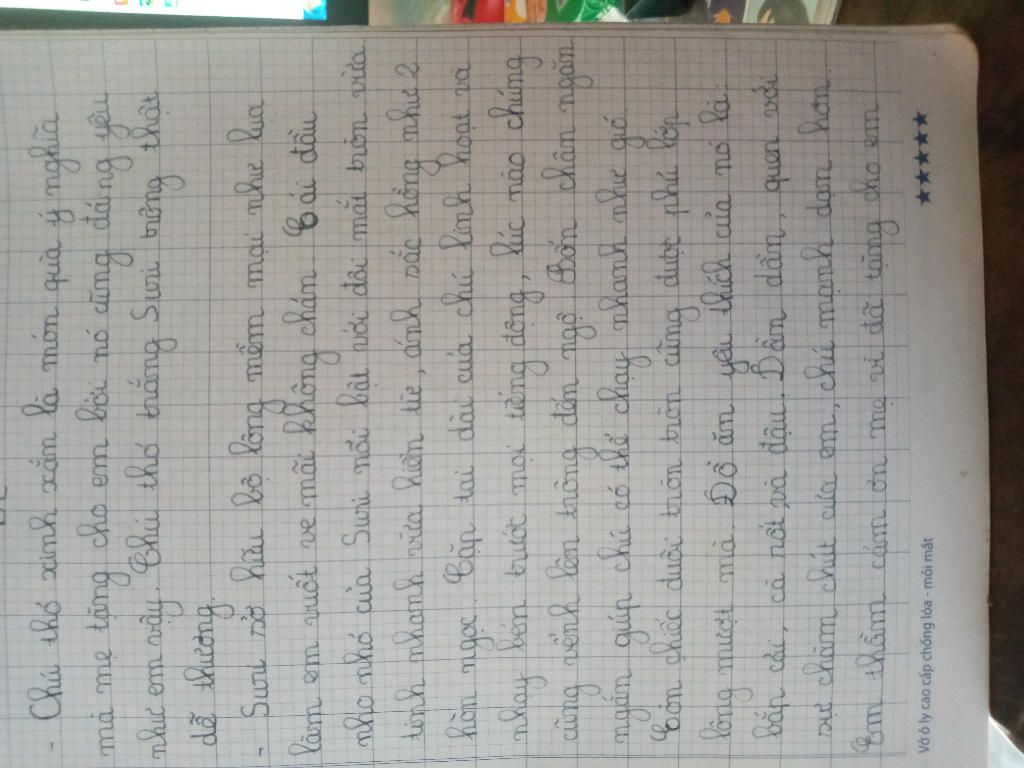 - Chú thỏ xinh xắn là món quà ý nghĩa
mà mẹ tặng cho em bởi nó cũng đáng yêu
như em vậy. Chú thỏ trắng Suri trông thật
dễ thương.
- Suri sở hữu bộ lông mềm mại như lụa
làm em vuốt ve mãi không chán. Cái đầu
nho nhỏ của Suri nổi bật với đôi mắt tròn vừa
tinh nhanh vừa hiền từ, ánh sắc hồng như 2
hòn ngọc. Cặp tai dài của chú linh hoạt và
nhạy bén trước mọi tiếng động, lúc nào chúng
cũng vểnh lên trông đến ngộ. Bốn chân ngăn
ngắn giúp chú có thể chạy nhanh như gió
Còn chiếc đuôi tròn tròn cũng được phủ lớp
lông mượt mà. Đồ ăn yêu thích của nó là:
bắp cải, cà rốt, và đậu. Dần dần, quen với
sự chăm chút của em, chú mạnh dạn hơn.
Em thầm cảm ơn mẹ vì đã tặng cho em
Vở ô ly cao cấp chống lóa - mỏi mắt
★★★★★